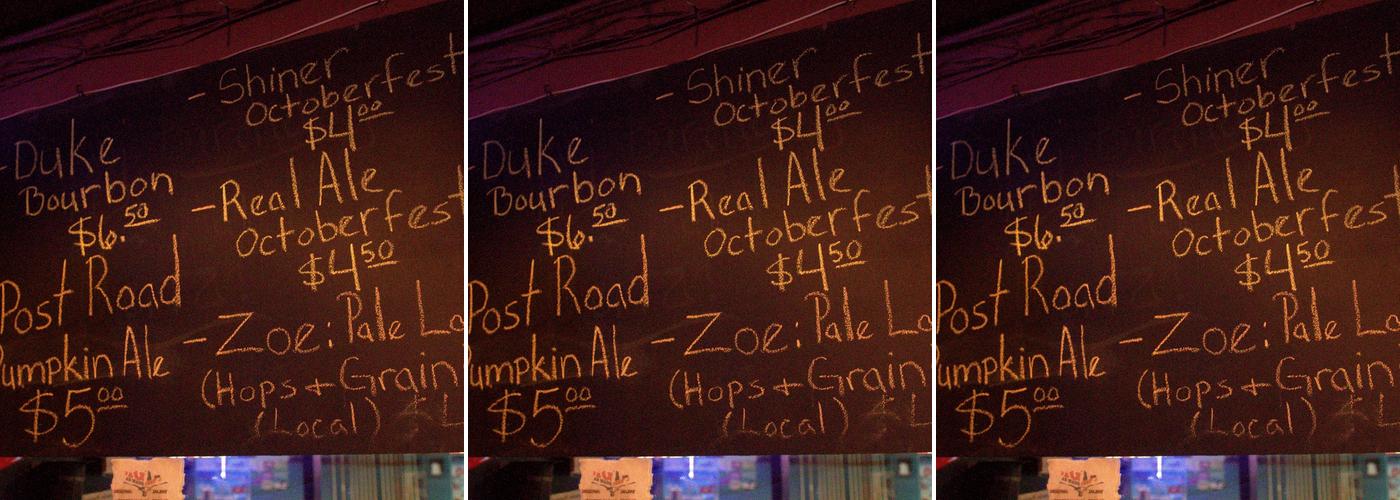 - Duke
Bourbon
$6.50
Post Road
Pumpkin Ale
$5.00
- Shiner
Octoberfest
$4.00
- Real Ale
Octoberfest
$4.50
- Zoe: Pale
(Hops + Grain
(Local)
- Duke
Bourbon
$6.50
Post Road
Pumpkin Ale
$5.00
- Shiner
Octoberfest
$4.00
- Real Ale
Octoberfest
$4.50
- Zoe: Pale
(Hops + Grain
(Local)
- Duke
Bourbon
$6.50
Post Road
Pumpkin Ale
$5.00
- Shiner
Octoberfest
$4.00
- Real Ale
Octoberfest
$4.50
- Zoe: Pale
(Hops + Grain
(Local)